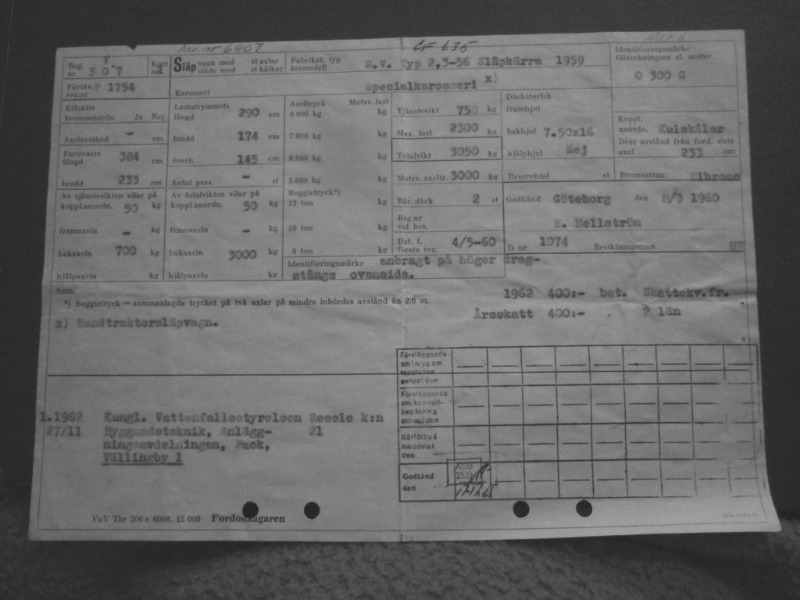 Inv. nr 6907 CF 635
Reg. nr Y 307 Kort nr
Släp vagn med st axlar
släde med st kälkar
Fabrikat, typ årsmodell S.V. Typ 2,3-56 Släpkärra 1959
Identifieringsmärke tillverkningsnr el. motor.
O 300 G
Förutv. reg.nr P 1754
Karosseri Specialkarosseri x)
Effektiv bromsanordn. Ja Nej
Lastutrymmets längd 290 cm
Axeltryck Motsv. last
6.000 kg kg
Tjänstevikt 750 kg
Däckstorlek framhjul
Koppl. anordn. Kulskålar
Axelavstånd - cm
bredd 174 cm
7.000 kg kg
Max. last 2300 kg
bakhjul 7.50x16
Dess avstånd från ford. sista axel 233 cm
Fordonets längd 384 cm
överh. 145 cm
6.000 kg kg
Totalvikt 3050 kg
hjälphjul Nej
bredd 233 cm
Antal pass. - st
5.000 kg kg
Motsv. axeltr. 3000 kg
Reservhjul st
Bromsutrustn.
Av tjänstevikten vilar på koppl.anordn. 50 kg
Av totalvikten vilar på koppl.anordn. 50 kg
Boggietryck*)
12 ton kg
Bär. däck 2 st
Godkänd Göteborg den 8/3 1960
framaxeln - kg
framaxeln - kg
10 ton kg
Reg.nr vid bes.
E. Hellström
bakaxeln 700 kg
bakaxeln 3000 kg
8 ton kg
Dat. f. första reg. 4/5-60
D nr 1074 Besiktningsman
hjälpaxeln kg
hjälpaxeln kg
Identifieringsmärke anbragt på höger drag-
stångs ovansida.
Anm.
*) Boggietryck = sammanlagda trycket på två axlar på mindre inbördes avstånd än 2,0 m.
1962 400:- bet. Skattekv.fr.
Årsskatt 400:- P län
x) Bandtraktorsläpvagn.
Föreläggande om inlyg om reparation senast den
Föreläggande om kontrollbesiktning senast den
Körförbud meddelat den
Godkänd den
1.1962 Kungl. Vattenfallsstyrelsen Råcksta k:n
27/11 Byggnadsteknik, Anlägg- 21
ningsavdelningen, Pack,
Vällingby 1
VoV Tbr 206 c 6008, 15 000 Fordonsägaren